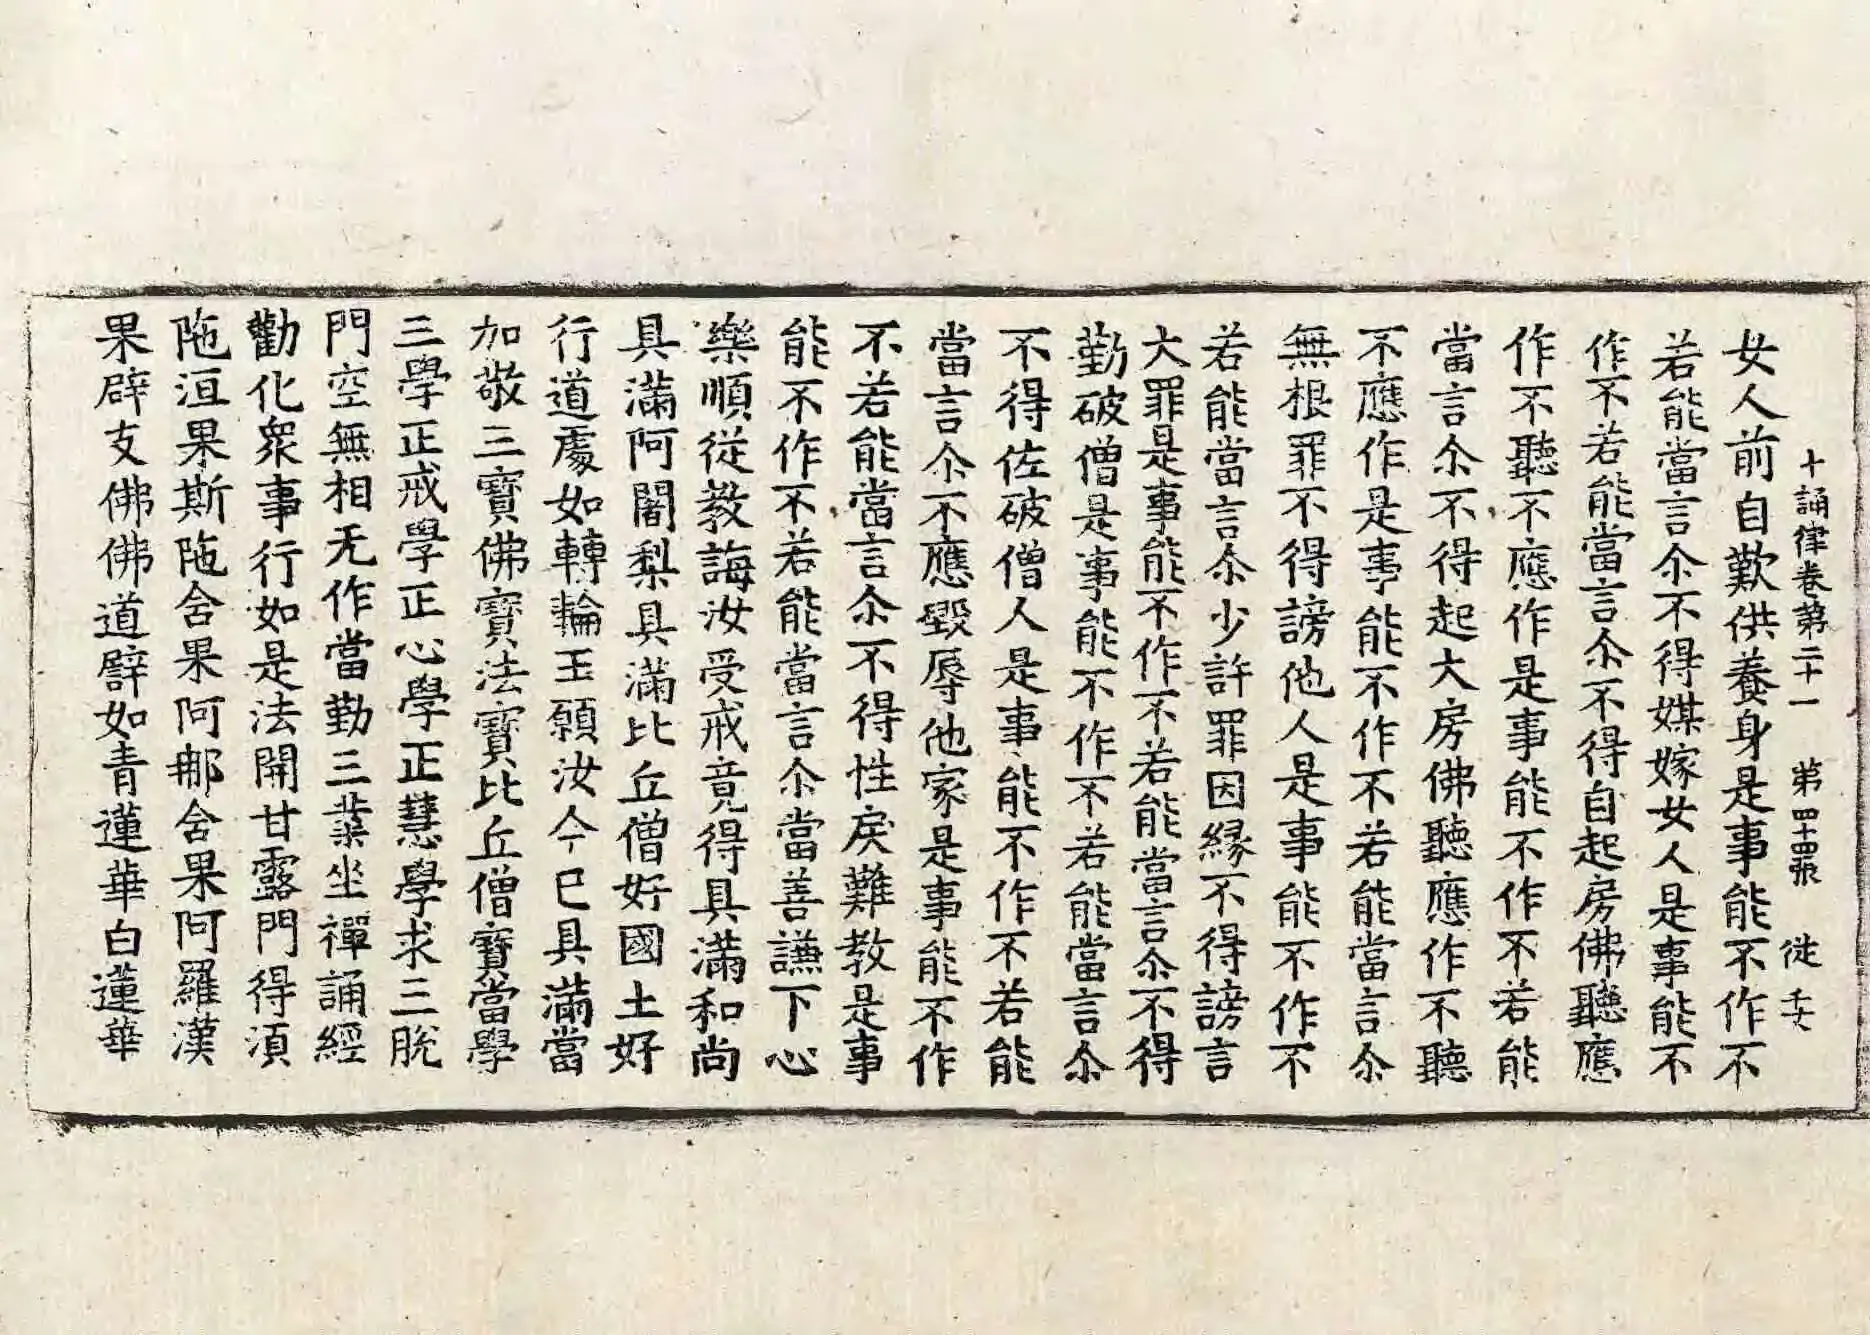 十誦律卷第二十一　第四十四張　徒
女人前自歎供養身是事能不作不
若能當言尒不得媒嫁女人是事能不
作不若能當言尒不得自起房佛聽應
作不聽不應作是事能不作不若能
當言尒不得起大房佛聽應作不聽
不應作是事能不作不若能當言尒
無根罪不得謗他人是事能不作不
若能當言尒少許罪因縁不得謗言
大罪是事能不作不若能當言尒不得
勤破僧是事能不作不若能當言尒
不得佐破僧人是事能不作不若能
當言尒不應毀辱他家是事能不作
不若能當言尒不得性戾難教是事
能不作不若能當言尒當善謙下心
樂順從教誨汝受戒竟得具滿和尚
具滿阿闍梨具滿比丘僧好國土好
行道處如轉輪王願汝今已具滿當
加敬三寶佛寶法寶比丘僧寶當學
三學正戒學正心學正慧學求三脫
門空無相无作當勤三業坐禪誦經
勸化衆事行如是法開甘露門得湏
陁洹果斯陁含果阿那含果阿羅漢
果辟支佛佛道譬如青蓮華白蓮華